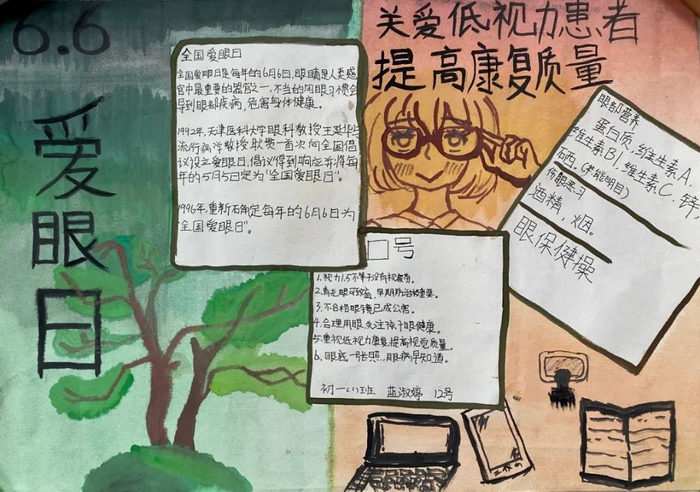 6.6
爱眼日
关爱低视力患者
提高康复质量
全国爱眼日
全国爱眼日是每年的6月6日,眼睛是人类感
官中最重要的器官之一,不当的用眼习惯会
导到眼部疾病,危害身体健康。
1992年,天津医科大学眼科教授王延华与
流行病学教授耿贯一首次向全国倡
议设立爱眼日,倡议得到响应并将每
年的5月5日定为"全国爱眼日"。
1996年,重新石确定每年的6月6日为
"全国爱眼日"。
眼部营养
蛋白质,维生素A,
维生素B1,维生素C,锌
硒。
伤眼恶习
酒精,烟。
眼保健操
口号
1.视力1.5不等于没有视疲劳。
2.青光眼可致盲,早期防治较重要。
3.不合格眼镜已成公害。
4.合理用眼,关注孩子眼健康。
5.重视低视力患者,提高视觉质量。
6.眼底一张照,眼病早知道。
初一(1)班 蓝淑婷 12号